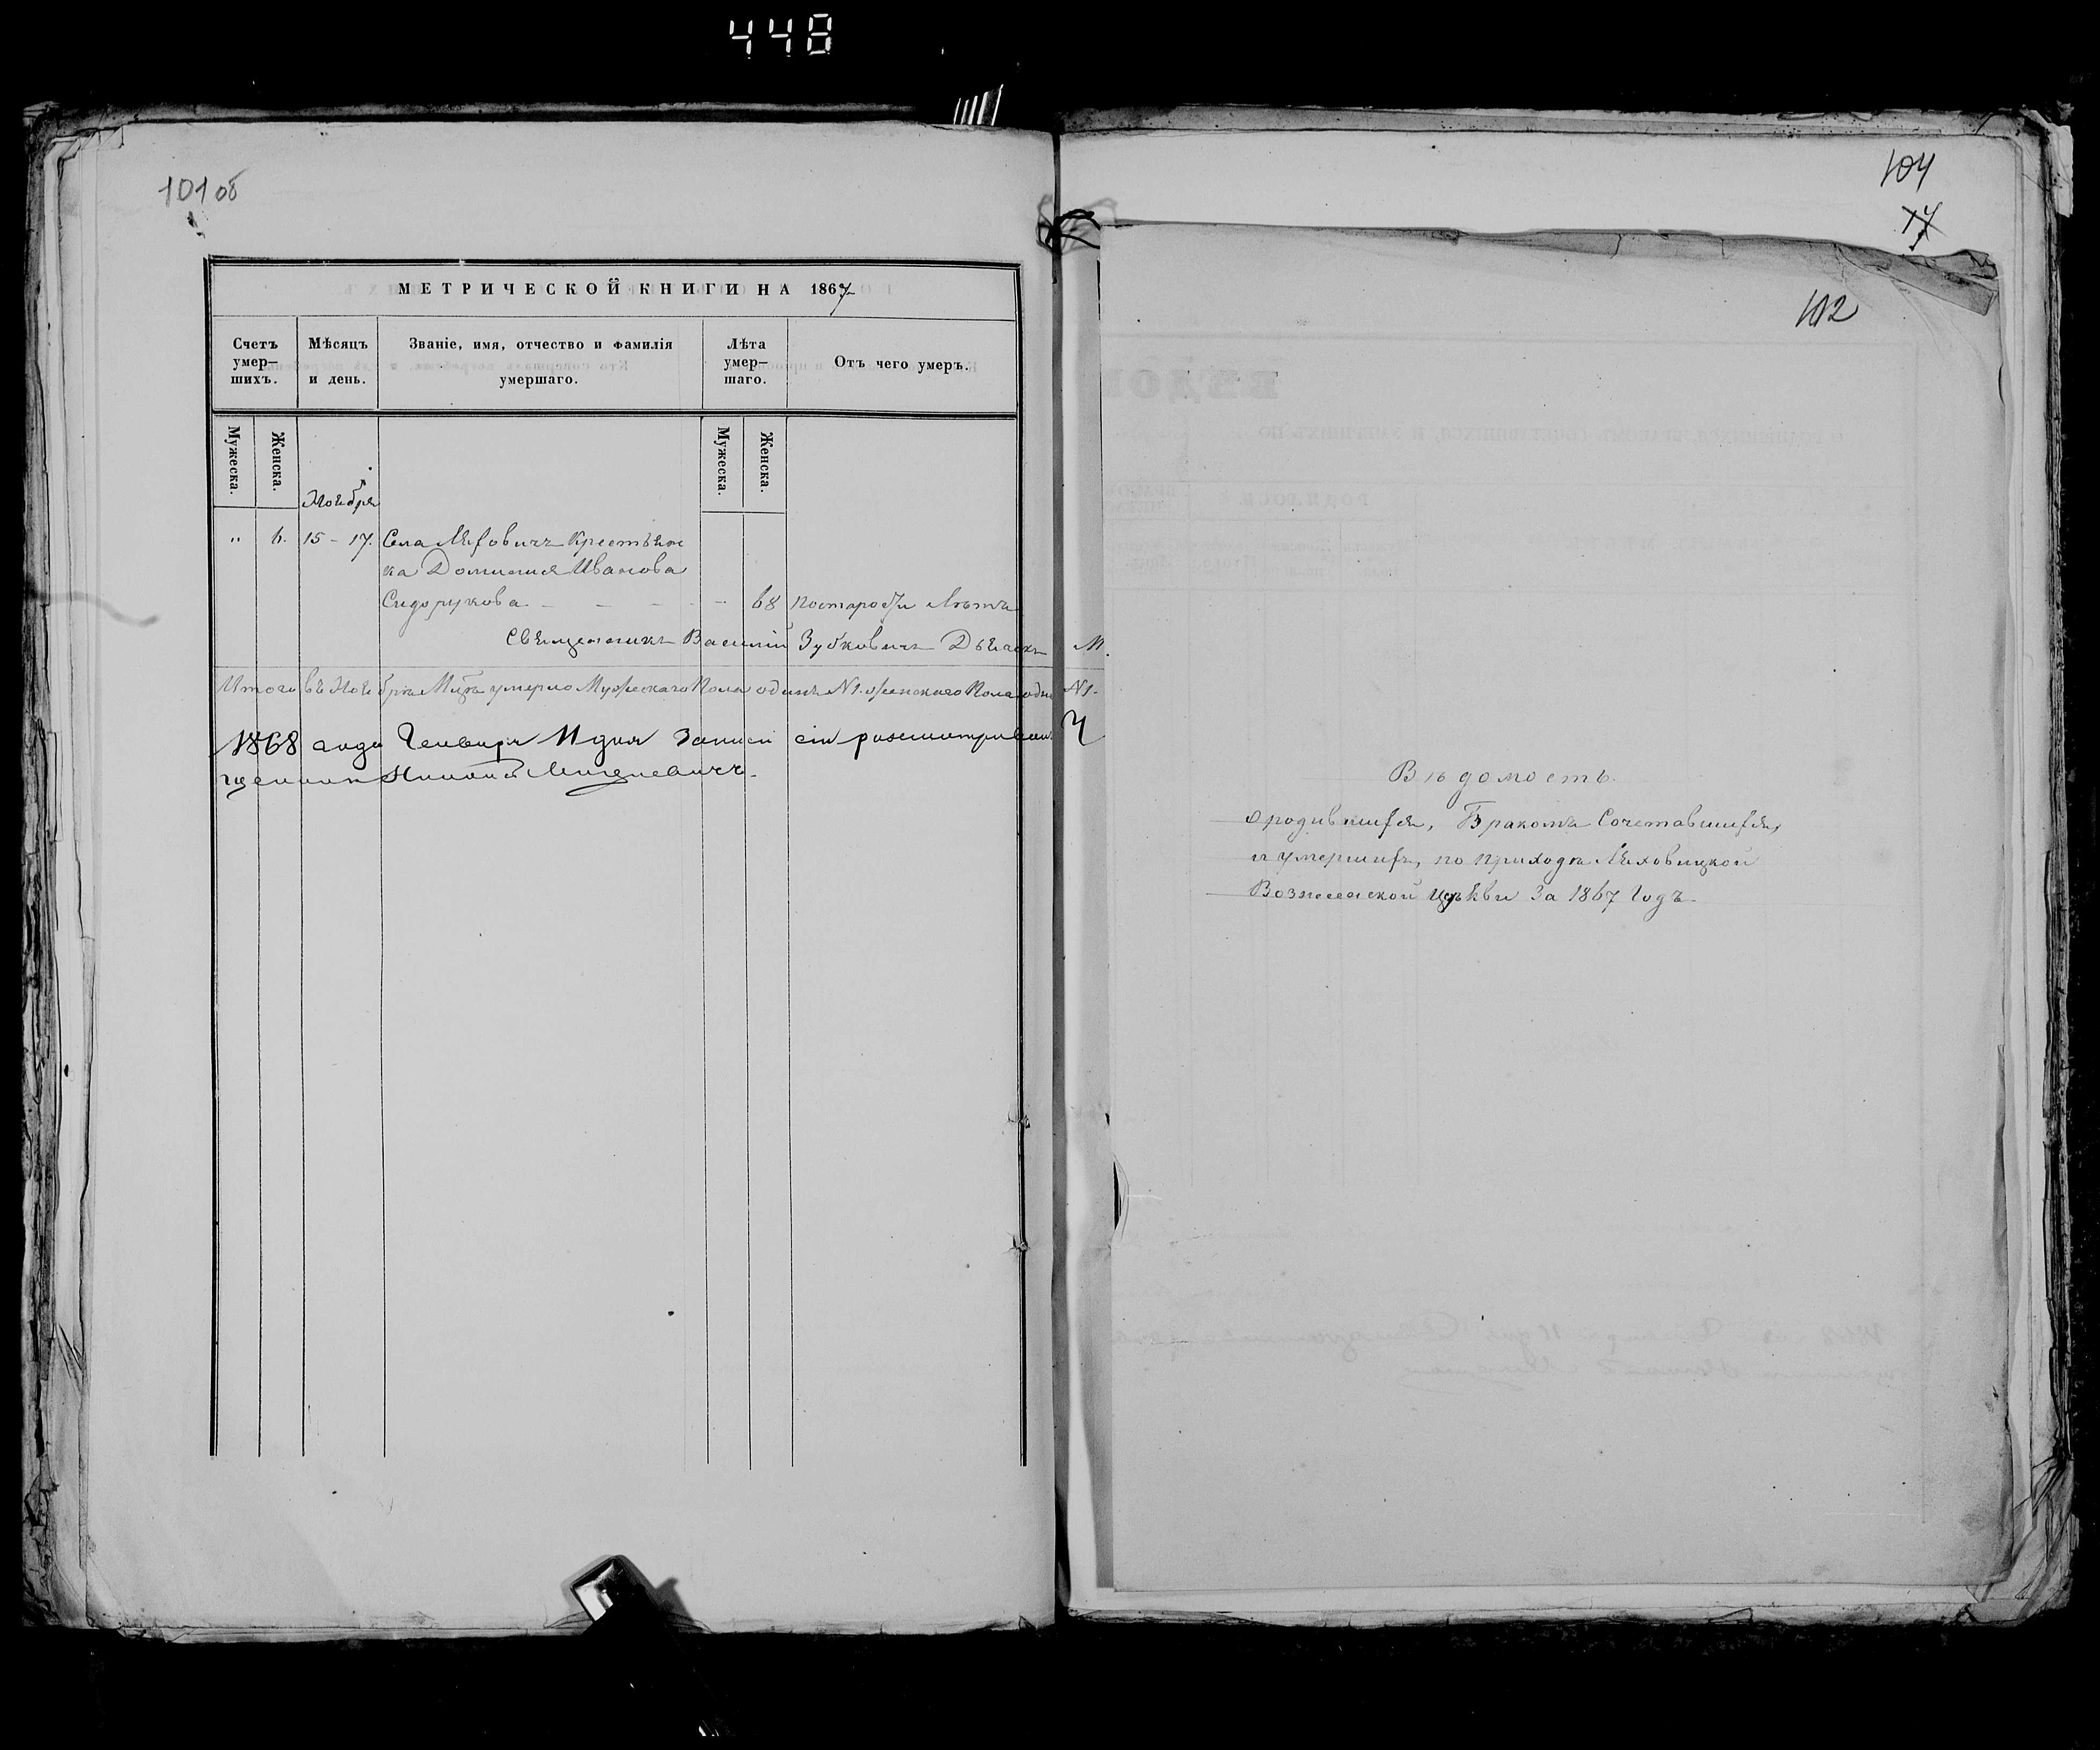 448
101 об
МЕТРИЧЕСКОЙ КНИГИ НА 1867
Счетъ умер–шихъ.
Мѣсяцъ и день.
Званіе, имя, отчество и фамилія умершаго.
Лѣта умер–шаго.
Отъ чего умеръ.
Мужеска.
Женска.
Мужеска.
Женска.
Ноября
" 6. 15 – 17. Села Ляховичъ Крестьян
ка Домникія Иванова
Сидорукова – – – – – 68 По старости Лѣтъ
Священникъ Василій Зубковичъ Дьячекъ М.
Итого въ Ноябрѣ М-цѣ умерло Мужескаго Пола одинъ №1. женскаго Пола одна №1.
1868 года Генваря 11 дня Записи сіи разсматривалъ
щенникъ
104
17
102
Вѣдомость
о родившихся, Бракомъ Сочетавшихся,
и умершихъ, по приходѣ Ляховицкой
Вознесенской Церкви За 1867 Годъ.